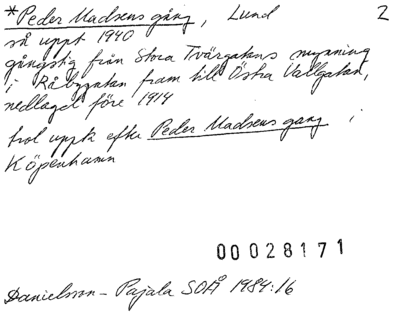 *Peder Madsens gång, Lund 2
så uppk 1940
gångstig från Stora Tvärgatans mynning
i Råbygatan fram till Östra Vallgatan,
nedlagd före 1914
trol uppk efter Peder Madsens gang i
Köpenhamn
00028171
Danielsson - Pajala SOÅ 1984:16